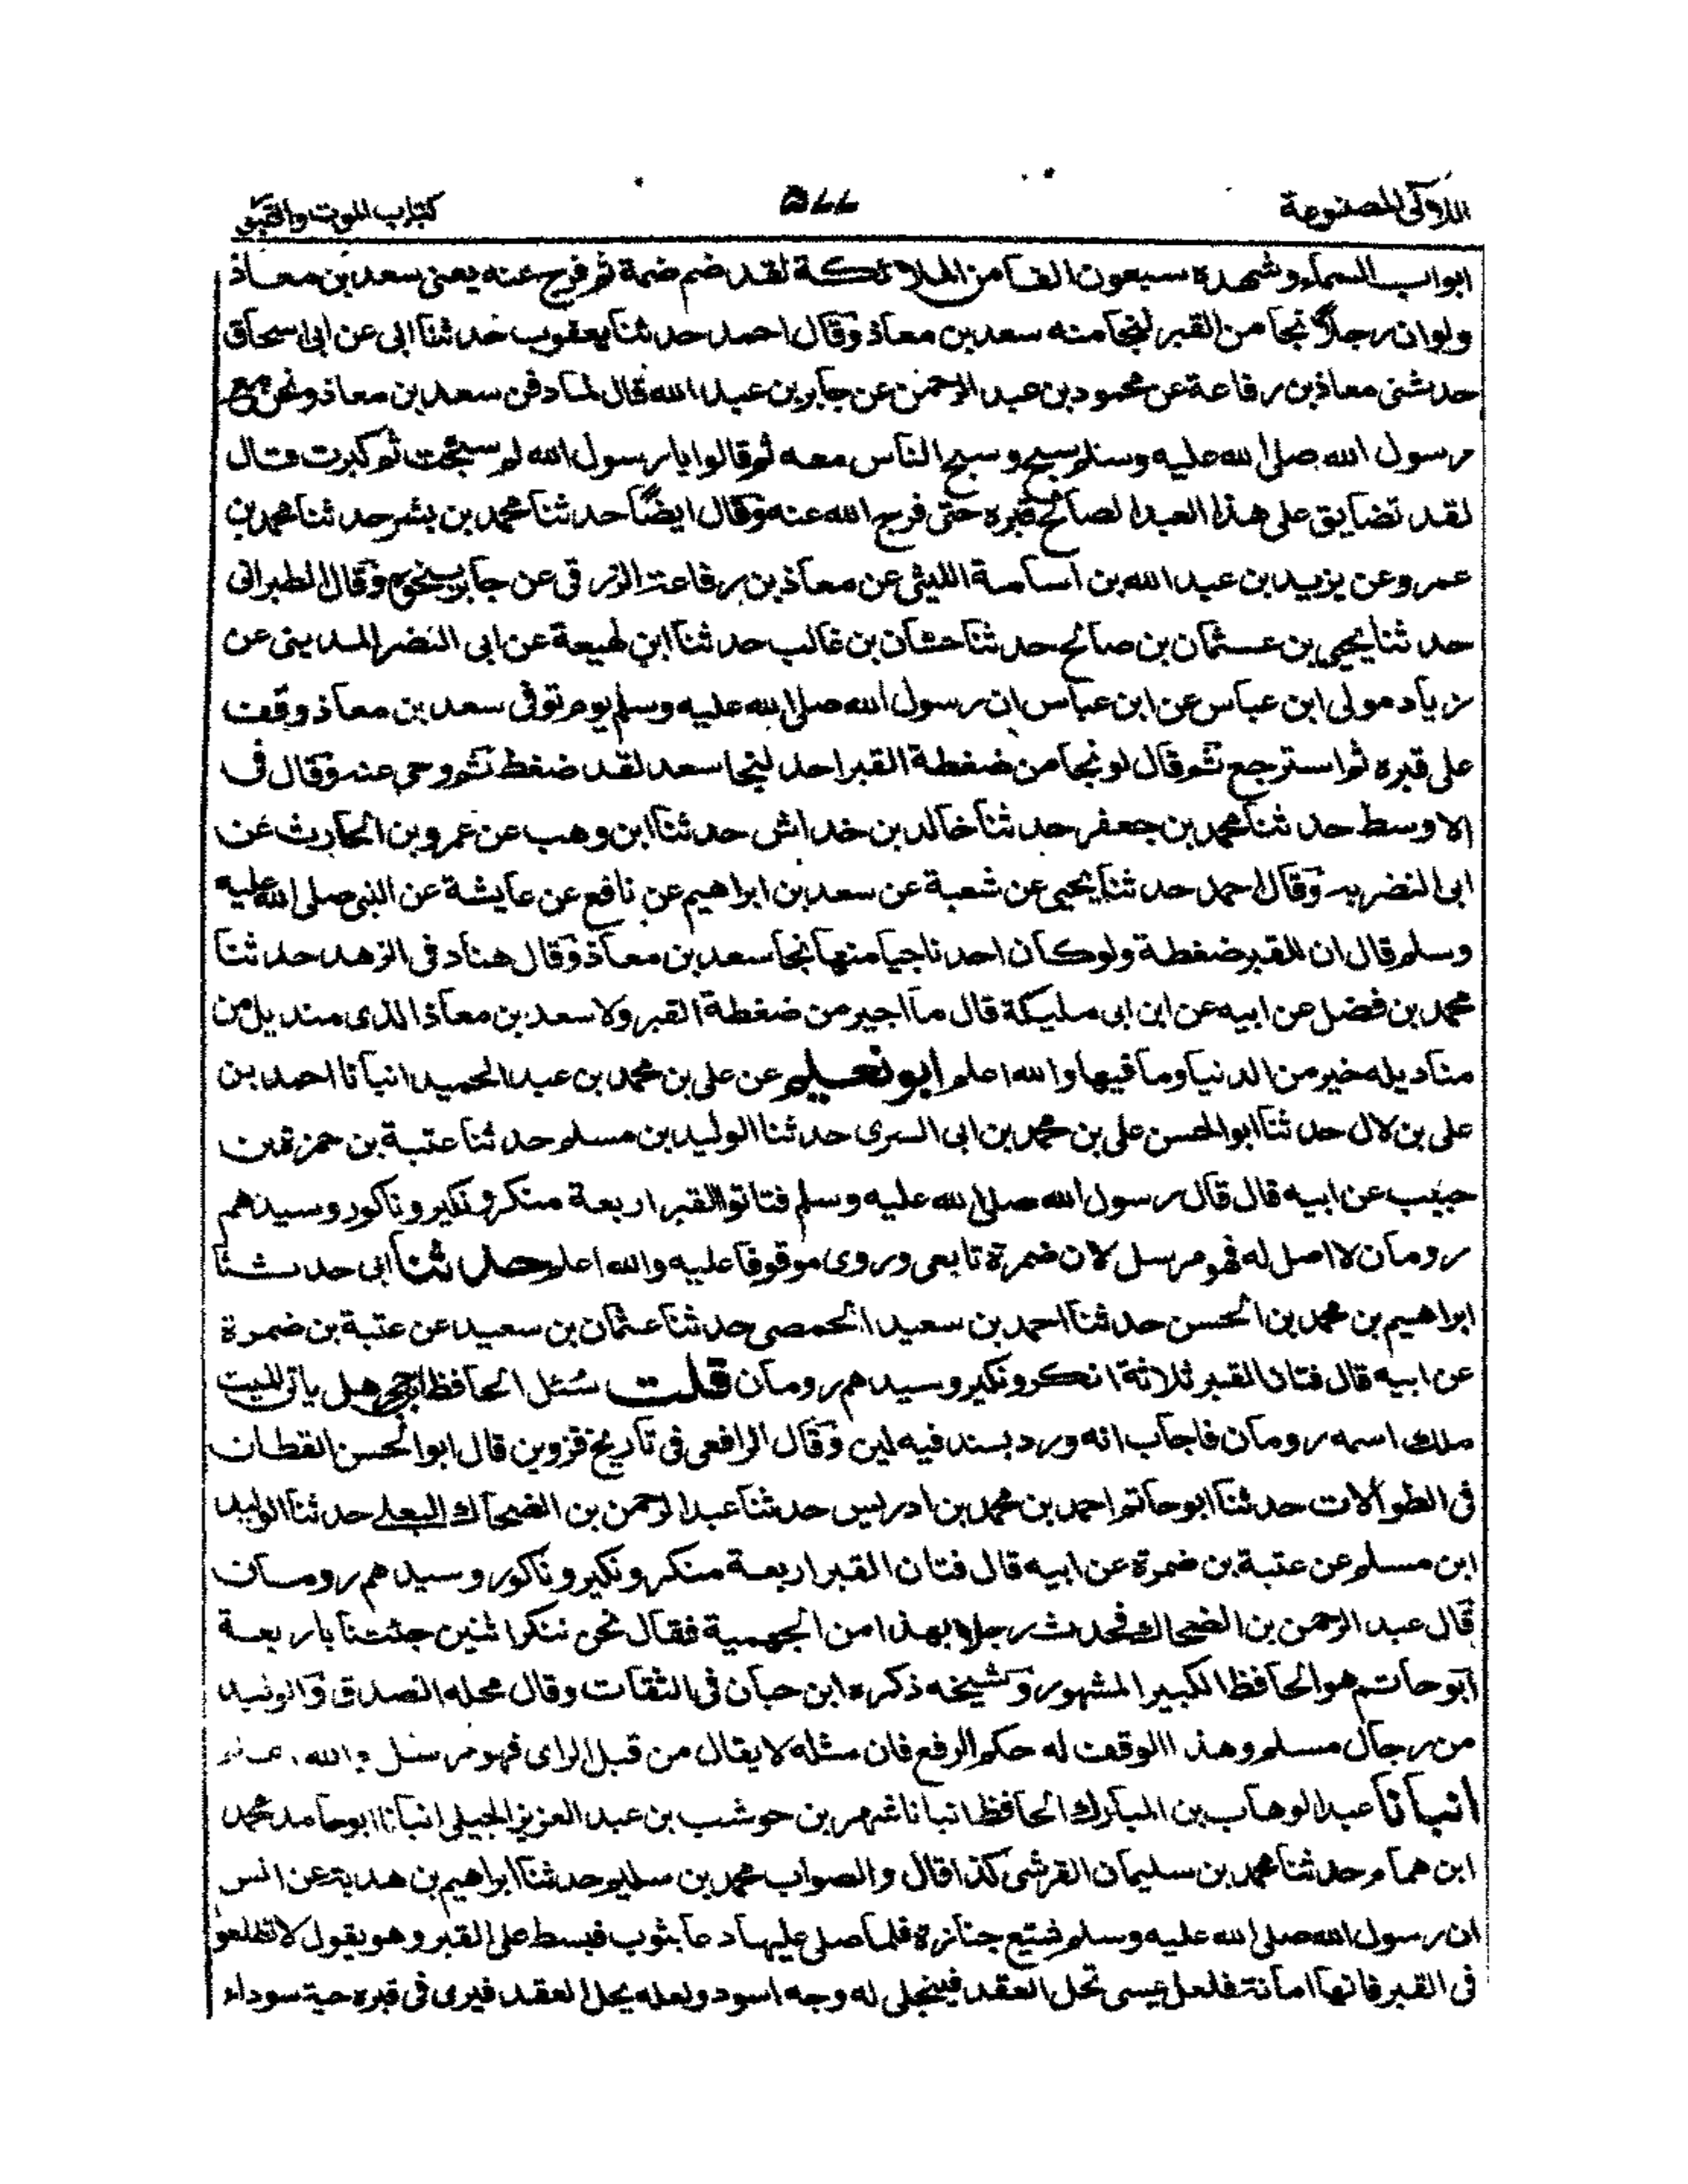 اللآلى المصنوعة
٥٧٧
كتاب الموت والقبور
ابواب السماء وشهده سبعون الفا من الملائكة لقد ضم ضمة ثم فرج عنه يعنى سعد بن معاذ
ولو ان رجلاً نجا من القبر لنجا منه سعد بن معاذ وقال احمد حدثنا يعقوب حدثنا ابى عن ابى اسحاق
حدثنى معاذ بن رفاعة عن محمود بن عبد الرحمن عن جابر بن عبد الله قال لما دفن سعد بن معاذ ونحن مع
رسول الله صلى الله عليه وسلم سبح وسبح الناس معه ثم قالوا يا رسول الله لم سبحت ثم كبرت قال
لقد تضايق على هذا العبد الصالح قبره حتى فرج الله عنه وقال ايضًا حدثنا محمد بن بشر حدثنا محمد بن
عمرو عن يزيد بن عبد الله بن اسامة الليثى عن معاذ بن رفاعة الزرقى عن جابر بنحوه وقال الطبرانى
حدثنا يحيى بن عثمان بن صالح حدثنا حسان بن غالب حدثنا ابن لهيعة عن ابى النضر المدينى عن
زياد مولى ابن عباس عن ابن عباس ان رسول الله صلى الله عليه وسلم يوم توفى سعد بن معاذ وقف
على قبره ثم استرجع ثم قال لو نجا من ضغطة القبر احد لنجا سعد لقد ضغط ثم روحى عنه وقال فى
الاوسط حدثنا محمد بن جعفر حدثنا خالد بن خداش حدثنا ابن وهب عن عمرو بن الحارث عن
ابى النضر به وقال احمد حدثنا يحيى عن شعبة عن سعد بن ابراهيم عن نافع عن عايشة عن النبى صلى الله عليه
وسلم قال ان للقبر ضغطة ولو كان احد ناجيا منها نجا سعد بن معاذ وقال هناد فى الزهد حدثنا
محمد بن فضل عن ابيه عن ابن ابى مليكة قال ما اجير من ضغطة القبر ولا سعد بن معاذ الذى منديل من
مناديله خير من الدنيا وما فيها والله اعلم ابو نعيم عن على بن محمد بن عبد الحميد انبانا احمد بن
على بن لال حدثنا ابو الحسن على بن محمد بن ابى السرى حدثنا الوليد بن مسلم حدثنا عتبة بن حمزة بن
حبيب عن ابيه قال قال رسول الله صلى الله عليه وسلم فتانو القبر اربعة منكر ونكير وناكور وسيدهم
رومان لا اصل له فهو مرسل لان ضمرة تابعى وروى موقوفا عليه والله اعلم حدثنا ابى حدثنا
ابراهيم بن محمد بن الحسن حدثنا احمد بن سعيد الحمصى حدثنا عثمان بن سعيد عن عتبة بن ضمرة
عن ابيه قال فتان القبر ثلاثة انكر ونكير وسيدهم رومان قلت سئل الحافظ ابن حجر هل ياتى الميت
ملك اسمه رومان فاجاب انه ورد بسند فيه لين وقال الرافعى فى تاريخ قزوين قال ابو الحسن القطان
فى الطوالات حدثنا ابو حاتم احمد بن محمد بن ادريس حدثنا عبد الرحمن بن الضحاك البعلى حدثنا الوليد
ابن مسلم عن عتبة بن ضمرة عن ابيه قال فتان القبر اربعة منكر ونكير وناكور وسيدهم رومان
قال عبد الرحمن بن الضحاك فحدث رجلا بهذا من الجهمية فقال نحن ننكر اثنين جئتنا باربعة
ابو حاتم هو الحافظ الكبير المشهور وشيخه ذكره ابن حبان فى الثقات وقال محله الصدق والوليد
من رجال مسلم وهذا الوقف له حكم الرفع فان مثله لا يقال من قبل الراى فهو مرسل والله اعلم
انبانا عبد الوهاب بن المبارك الحافظ انبانا شهر بن حوشب بن عبد العزيز الجيلى انبانا ابو حامد محمد
ابن همام حدثنا محمد بن سليمان القرشى كذا قال والصواب محمد بن سليم حدثنا ابراهيم بن هدبة عن انس
ان رسول الله صلى الله عليه وسلم شيع جنازة فلما صلى عليها دعا بثوب فبسط على القبر وهو يقول لا تطلعوا
فى القبر فانها امانة فلعل عيسى تحل العقد فينجلى له وجه اسود ولعله يحل العقد فيرى فى قبره حية سوداء